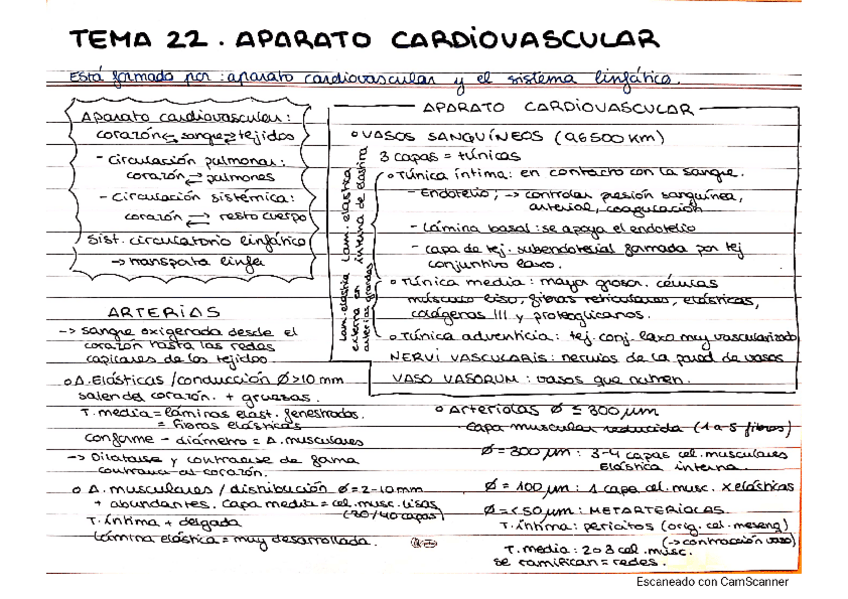 TEMA 22. APARATO CARDIOVASCULAR
Está formado por: aparato cardiovascular y el sistema linfático.
Aparato cardiovascular:
corazón ⇄ sangre ⇄ tejidos
- Circulación pulmonar:
corazón ⇄ pulmones
- Circulación sistémica:
corazón ⇄ resto cuerpo
Sist. circulatorio linfático
-> transporta linfa
ARTERIAS
-> sangre oxigenada desde el
corazón hasta las redes
capilares de los tejidos
o A. Elásticas / conducción Ø>10 mm
salen del corazón. + gruesas.
T. media = láminas elást. fenestradas.
= fibras elásticas
conforme - diámetro = A. musculares
-> Dilatarse y contraerse de forma
contraria al corazón.
o A. musculares / distribución Ø=2-10mm
+ abundantes. Capa media = cel. musc. lisas
(30/40 capas)
T. íntima + delgada
Lámina elástica = muy desarrollada.
APARATO CARDIOVASCULAR
o VASOS SANGUÍNEOS (96500 km)
3 capas = túnicas
o Túnica íntima: en contacto con la sangre.
- Endotelio; -> controlar presión sanguínea,
arterial, coagulación
- Lámina basal: se apoya el endotelio
- capa de tej. subendotelial formada por tej
conjuntivo laxo.
Lam. elástica interna de elastina
o Túnica media: mayor grosor. células
músculo liso, fibras reticulares, elásticas,
colágenas III y proteoglicanos.
Lam. elástica externa en arterias grandes
o Túnica adventicia: tej. conj. laxo muy vascularizado
NERVI VASCULARIS: nervios de la pared de vasos
VASO VASORUM: vasos que nutren.
o Arteriolas Ø ≤ 300 µm
Capa muscular reducida (1 a 5 fibras)
Ø = 300 µm: 3-4 capas cel. musculares
Elástica interna.
Ø = 100 µm: 1 capa cel. musc. X elásticas
Ø = < 50 µm: METARTERIOLAS.
T. íntima: pericitos (orig. cel. meseng)
(-> contracción vaso)
T. media: 2 o 3 cel. musc.
se ramifican = redes.
Escaneado con CamScanner